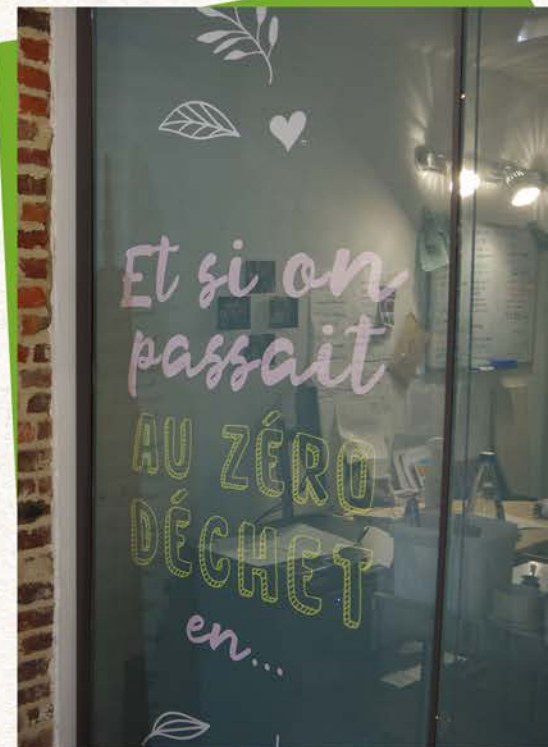 Et si on
passait
AU ZÉRO
DÉCHET
en...